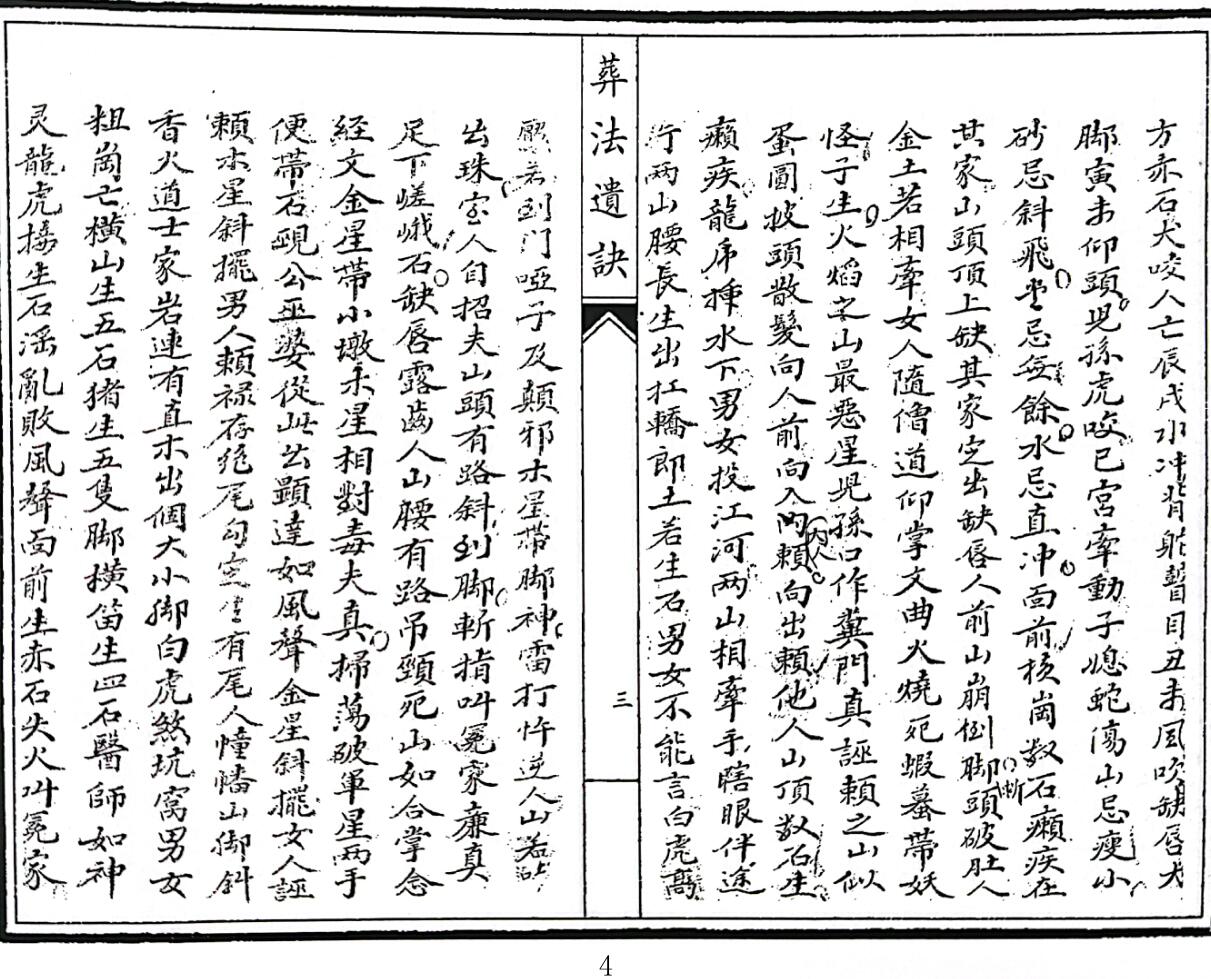 方赤石犬咬人亡辰戌水冲背駝瞽目丑未風吹缺唇犬
脚寅未仰頭児孫虎咬巳宮牽動子媳蛇傷山忌瘦小
砂忌斜飛堂忌無餘水忌直冲面前核崗数石癩疾在
其家山頭頂上缺其家定出缺唇人前山崩倒脚頭破肚人
断
金土若相牽女人隨僧道仰掌文曲火燒死蝦蟇帶妖
怪子生火熖之山最惡星児孫口作糞門真誣頼之山似
蛋圓披頭散髮向人前向入内頼向出頼他人山頂数石生
内人
癩疾龍虎揷水下男女投江河两山相牽手瞎眼伴途
行两山腰長生出扛轎郎土若生石男女不能言白虎高
壓若到门啞子及顛邪木星帶脚神雷打忤逆人山若
出珠宝人自招夫山頭有路斜到脚斬指叫冤家廉真
足下嵯峨石缺唇露齒人山腰有路吊頸死山如合掌念
経文金星帶小墩木星相對毒夫真掃蕩破軍星两手
便帶石硯公巫婆從此出顕達如風聲金星斜擺女人誣
頼木星斜擺男人頼禄存絶尾勾定生有尾人幢幡山脚斜
香火道士家岩連有直木出個大小脚白虎煞坑窩男女
粗崗亡橫山生五石猪生五隻脚橫笛生四石醫師如神
灵龍虎搞生石滛亂敗風聲面前生赤石失火叫冤家
葬法遺訣
三
4